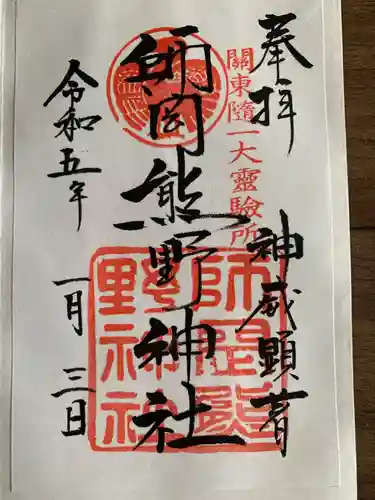 奉拝
關東隨一大靈驗所
神威顕著
師岡熊野神社
師岡熊
野神社
令和五年
一月三日